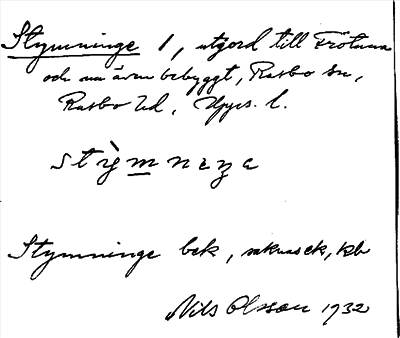 Stymninge 1, utjord till Frötuna
och nu även bebyggt, Rasbo sn,
Rasbo hd, Upps. l.
stỳmneŋe
Stymninge bek, saknas ek, kb
Nils Olsson 1932